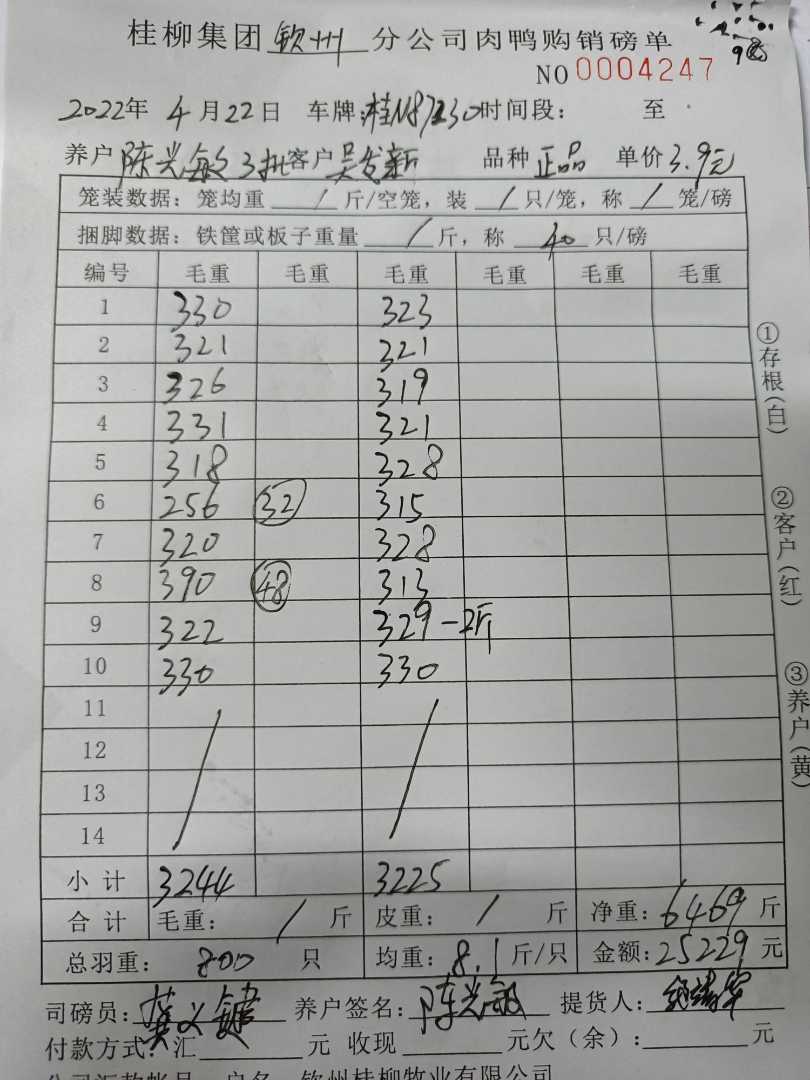 桂柳集团钦州分公司肉鸭购销磅单
98
NO 0004247
2022年 4月22日 车牌: 时间段: 至
养户陈兴敏3批客户吴发新 品种正品 单价3.9元
笼装数据: 笼均重 / 斤/空笼, 装 / 只/笼, 称 / 笼/磅
捆脚数据: 铁筐或板子重量 / 斤, 称 40 只/磅
编号 毛重 毛重 毛重 毛重 毛重 毛重
1 330 323
2 321 321
3 326 319
4 331 321
5 318 328
6 256 32 315
7 320 328
8 390 48 313
9 322 329-2斤
10 330 330
11
12
13
14
小计 3244 3225
合计 毛重: / 斤 皮重: / 斤 净重: 6469 斤
总羽重: 800 只 均重: 8.1 斤/只 金额: 25229 元
司磅员: 养户签名: 陈兴敏 提货人:
付款方式: 汇 元 收现 元欠(余): 元
公司汇款帐号 户名 钦州桂柳牧业有限公司
①存根(白)
②客户(红)
③养户(黄)